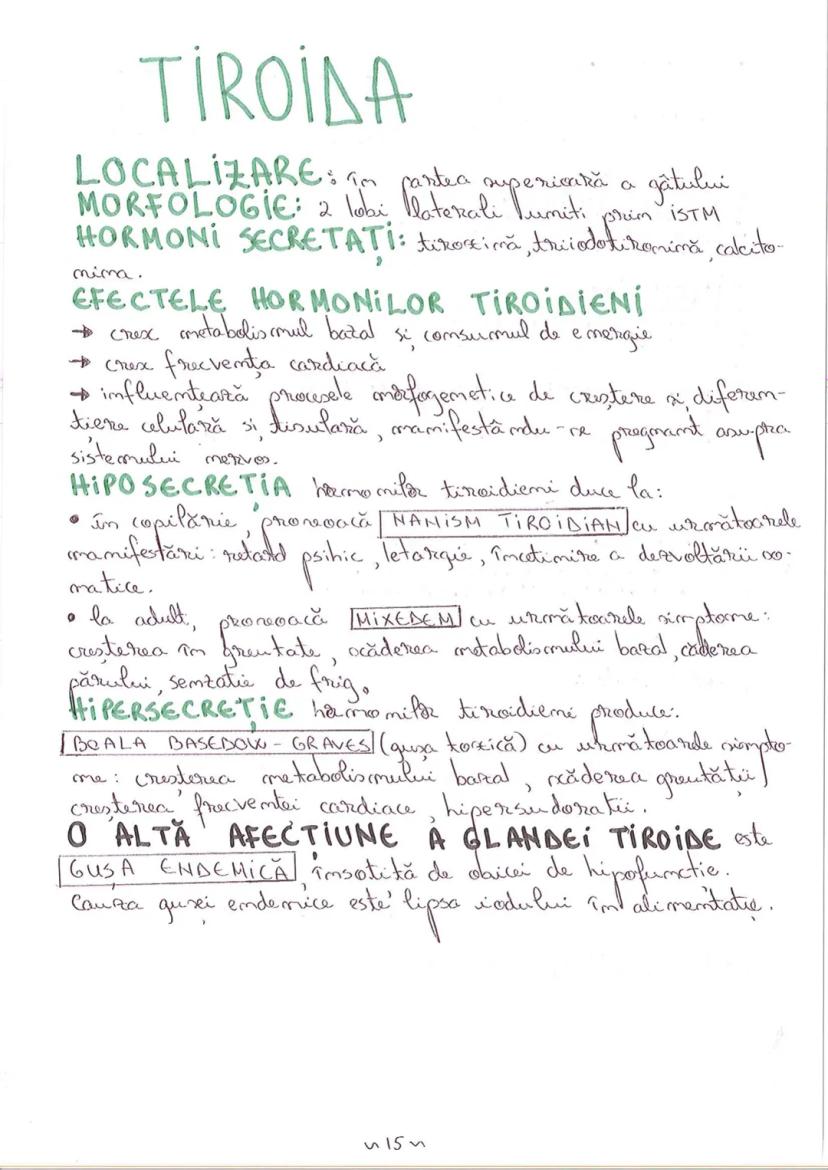 TIROIDA
LOCALIZARE: în partea superioară a gâtului
MORFOLOGIE: 2 lobi laterali uniti prin ISTM
HORMONI SECRETAȚI: tiroxină, triiodotironină, calcito-
nina.
EFECTELE HORMONILOR TIROIDIENI
→ cresc metabolismul bazal și consumul de energie
→ cresc frecvența cardiacă
→ influențează procesele morfogenetice de creștere și diferen-
țiere celulară și tisulară, manifestându-se pregnant asupra
sistemului nervos.
HIPOSECREȚIA hormonilor tiroidieni duce la:
• în copilărie, provoacă NANISM TIROIDIAN cu următoarele
manifestări: retard psihic, letargie, încetinire a dezvoltării so-
matice.
• la adult, provoacă MIXEDEM cu următoarele simptome:
creșterea în greutate, scăderea metabolismului bazal, căderea
părului, senzatie de frig.
HIPERSECREȚIE hormonilor tiroidieni produce:
BOALA BASEDOW-GRAVES (gușa toxică) cu următoarele simpto-
me: creșterea metabolismului bazal, scăderea greutății,
creșterea frecventei cardiace, hipersudorații.
O ALTĂ AFECȚIUNE A GLANDEI TIROIDE este
GUȘA ENDEMICĂ, însoțită de obicei de hipofuncție.
Cauza gușei endemice este lipsa iodului în alimentație.
~ 15 ~